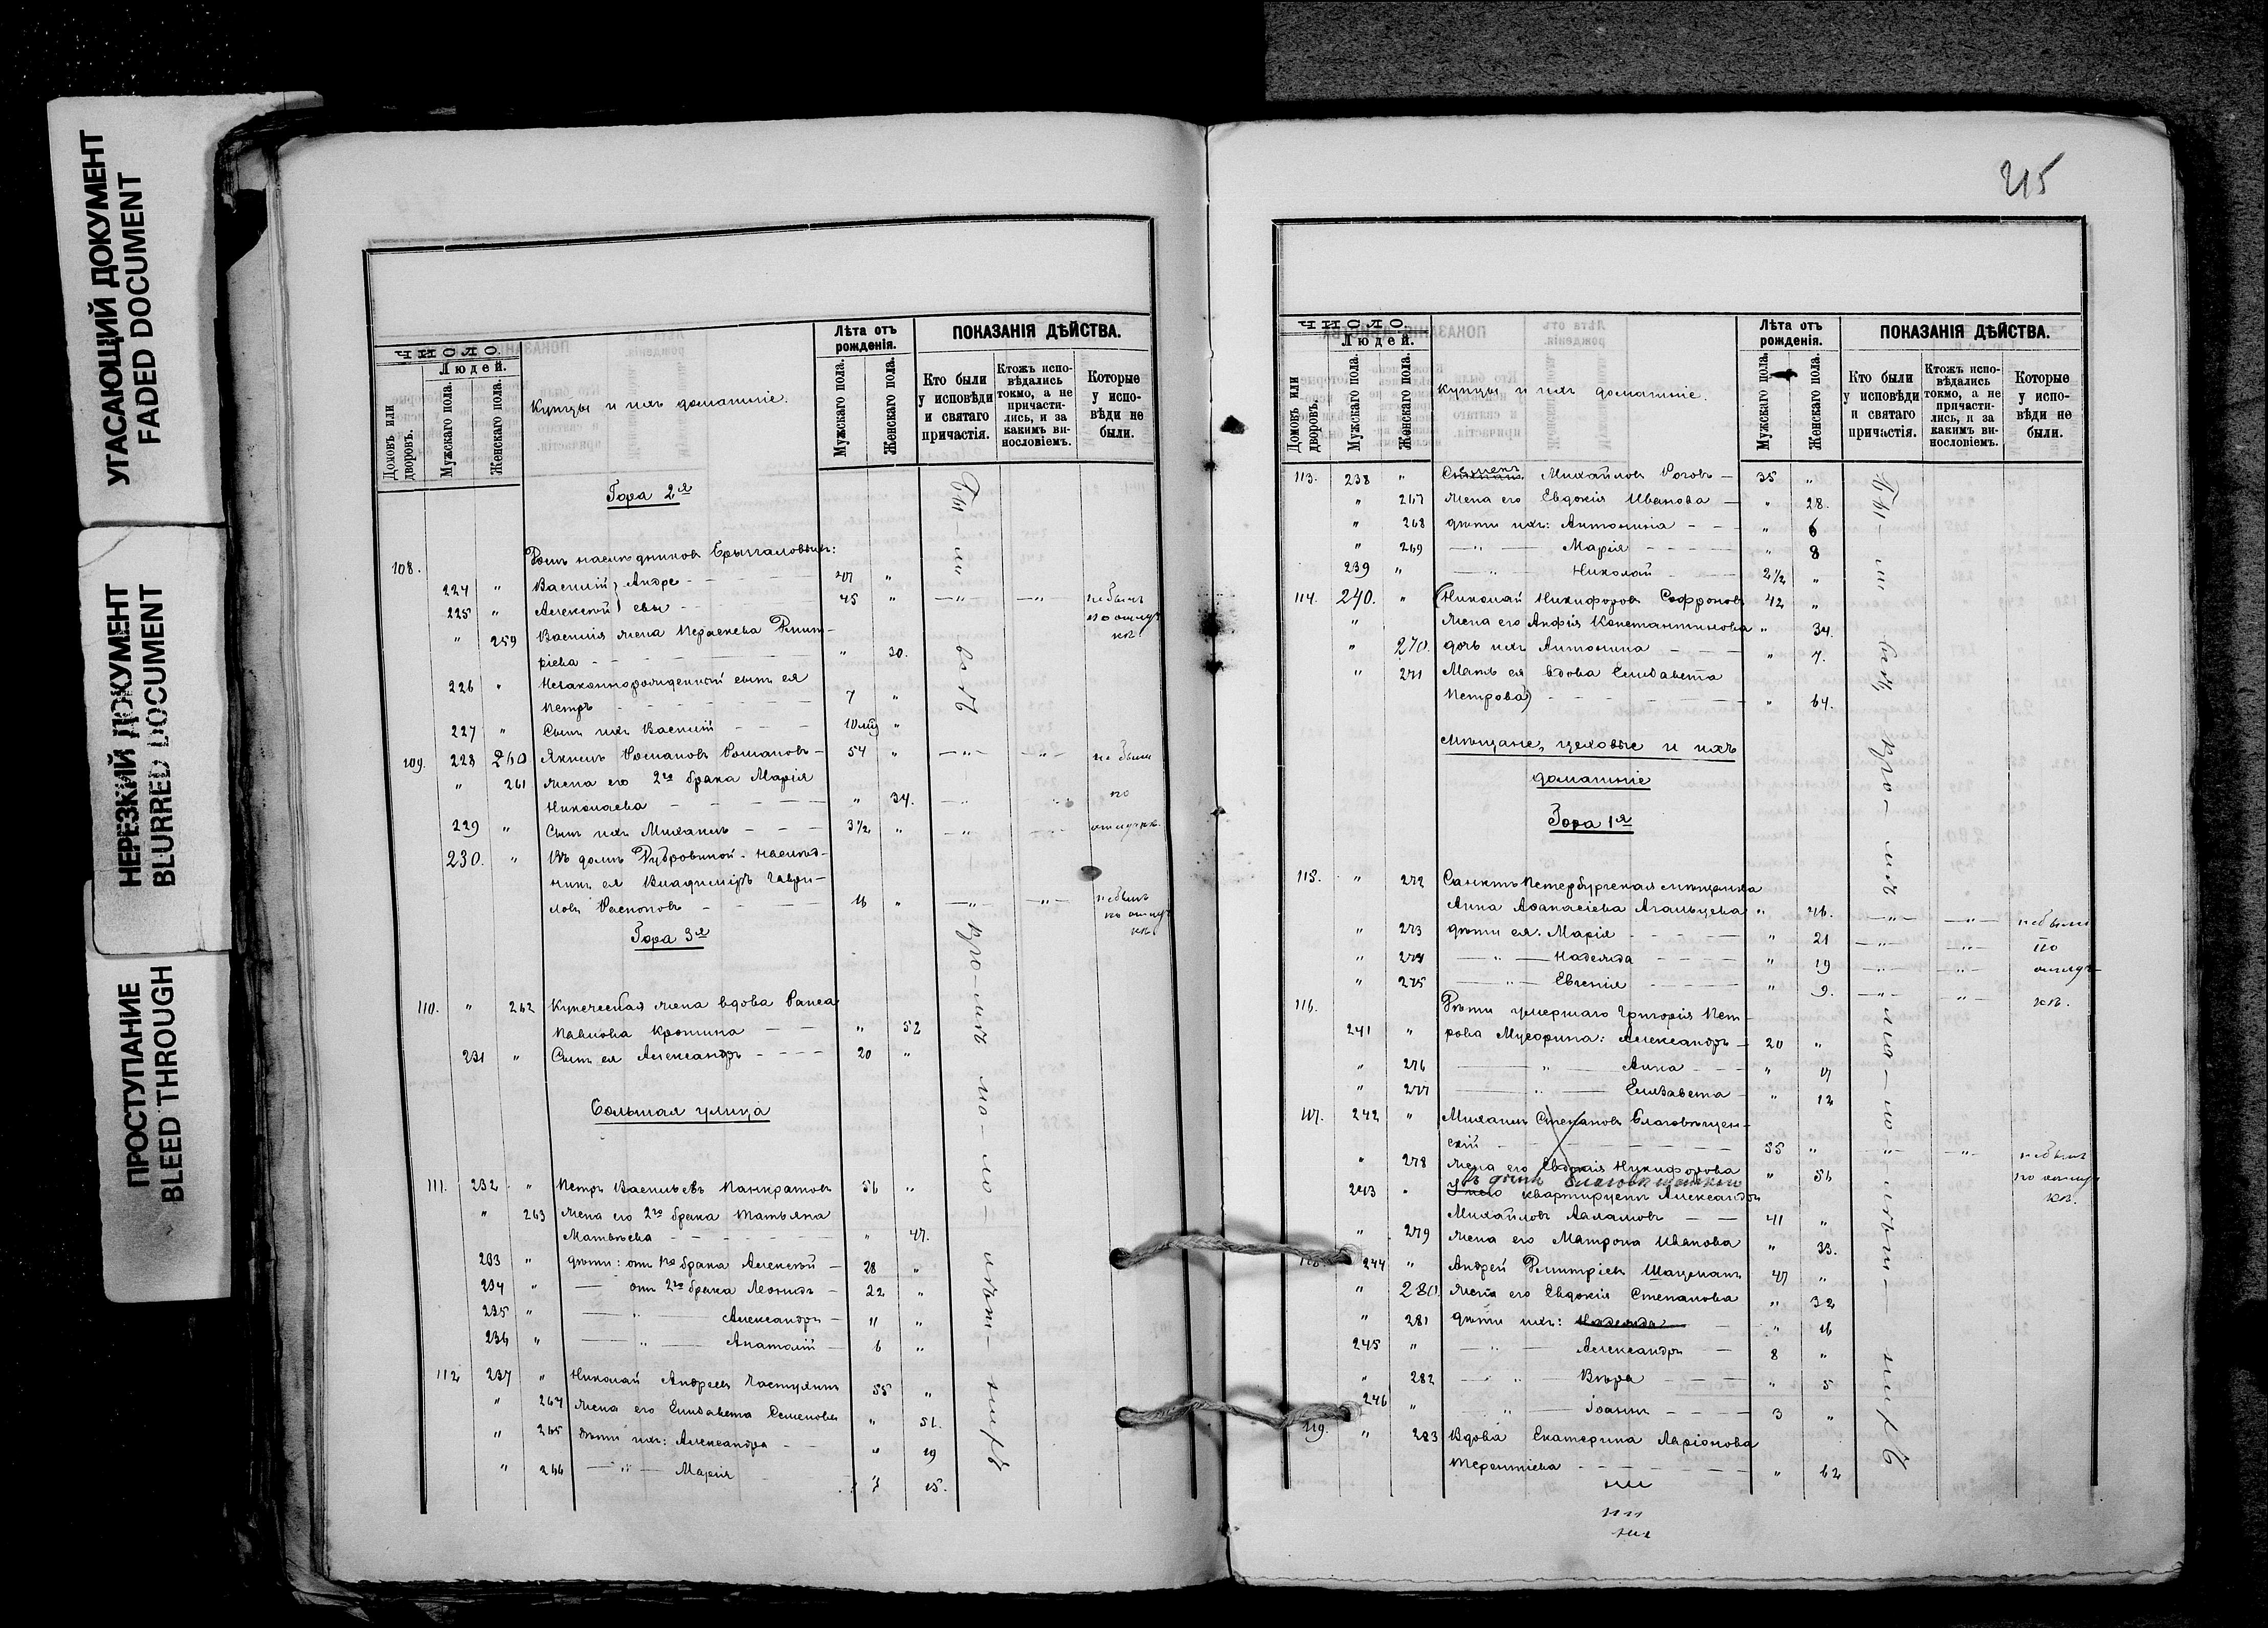 УГАСАЮЩИЙ ДОКУМЕНТ
FADED DOCUMENT
НЕРЕЗКИЙ ДОКУМЕНТ
BLURRED DOCUMENT
ПРОСТУПАНИЕ
BLEED THROUGH
ЧИСЛО
Домовъ или дворовъ.
Людей.
Мужскаго пола.
Женскаго пола.
Купцы и ихъ домашніе.
Лѣта отъ рожденія.
Мужскаго пола.
Женскаго пола.
ПОКАЗАНІЯ ДѢЙСТВА.
Кто были у исповѣди и святаго причастія.
Ктожъ испо-
вѣдались
токмо, а не
причасти-
лись, и за
какимъ ви-
нословіемъ.
Которые
у испо-
вѣди не
были.
Гора 2я
108. Домъ наслѣдниковъ
224 " Василій, Андре- "
225 " Алексѣй евы 45 " —"— —"— небылъ
" 259 Василія жена Дмит- по отлуч
ріева " 30. кѣ
226 " Незаконнорожденный сынъ ея
Петръ 7 "
227 " Сынъ ихъ Василій "
109. 228 260 Романовъ Романовъ 54 " —"— —"— не были
" 261 жена его 2го брака Марія
Николаева " 34. —"— —"— по
229 " Сынъ ихъ Михаилъ 3½ " —"— —"— отлучкѣ.
230. " Въ домѣ Дубровиной наслѣд-
никъ ея Владиміръ Гаври-
ловъ 16 " —"— —"— небылъ
по отлуч
кѣ
Гора 3я
110. " 262 Купеческая жена вдова Раиса
Павлова Кротина " 52
231 " Сынъ ея Александръ 20 "
Большая улица
111. 232 " Петръ Васильевъ Панкратовъ 56 "
" 263 жена его 2го брака Татьяна
Матвѣева " 47.
233 " дѣти: отъ 1го брака Алексѣй 28 "
234 " — отъ 2го брака Леонидъ 22 "
235 " — " — Александръ 11 "
236 " — " — Анатолій 6 "
112 237 " Николай Андреевъ Частухинъ 55 "
" 264 жена его Елизавета Семенова " 51.
" 265 дѣти ихъ: Александра " 19
" 266 — " — Марія " 15.
215
ЧИСЛО
Домовъ или дворовъ.
Людей.
Мужскаго пола.
Женскаго пола.
Купцы и ихъ домашніе.
Лѣта отъ рожденія.
Мужскаго пола.
Женскаго пола.
ПОКАЗАНІЯ ДѢЙСТВА.
Кто были у исповѣди и святаго причастія.
Ктожъ испо-
вѣдались
токмо, а не
причасти-
лись, и за
какимъ ви-
нословіемъ.
Которые
у испо-
вѣди не
были.
113. 238 " Михайловъ Роговъ 35 "
" 267 жена его Евдокія Иванова " 28.
" 268 дѣти ихъ: Антонина " 6
" 269 — " — Марія " 8
239 " — " — Николай 2½ "
114. 240. " (Николай Никифоровъ Софроновъ 42 "
" жена его Анфія Константинова " 34.
" 270. дочь ихъ Антонина " 7.
" 271 Мать ея вдова Елисавета
Петрова) " 64.
Мѣщане, цеховые и ихъ
домашніе
Гора 1я
115. " 272 Санктъ Петербургская мѣщанка
Анна Аѳанасіева Агальцева " 46. —"— —"— небыли
" 273 дѣти ея: Марія " 21 —"— —"— по
" 274 — " — Надежда " 19 —"— —"— отлуч-
" 275 — " — Евгенія " 9. —"— —"— кѣ.
116. Дѣти умершаго Григорія Пет-
241 " рова Мусорина: Александръ 20 "
" 276 — " — Анна " 17
" 277 — " — Елизавета " 12
117. 242 " Михаилъ Степановъ Благовѣщен-
скій 55 " —"— —"— небылъ
" 278 жена его Евдокія Никифорова " 56 по отлуч
кѣ.
Въ домѣ Благовѣщенскаго
243 " квартируетъ Александръ
Михайловъ 41 "
" 279 жена его Матрона Иванова " 33.
118. 244 " Андрей Дмитріевъ Шацманъ 47 "
" 280. жена его Евдокія Степанова " 32
" 281 дѣти ихъ: Надежда " 16
245 " — " — Александръ 8 "
" 282 — " — Вѣра " 5
246 " — " — Іоаннъ 3 "
119. " 283 Вдова Екатерина Ларіонова
Терентіева " 62